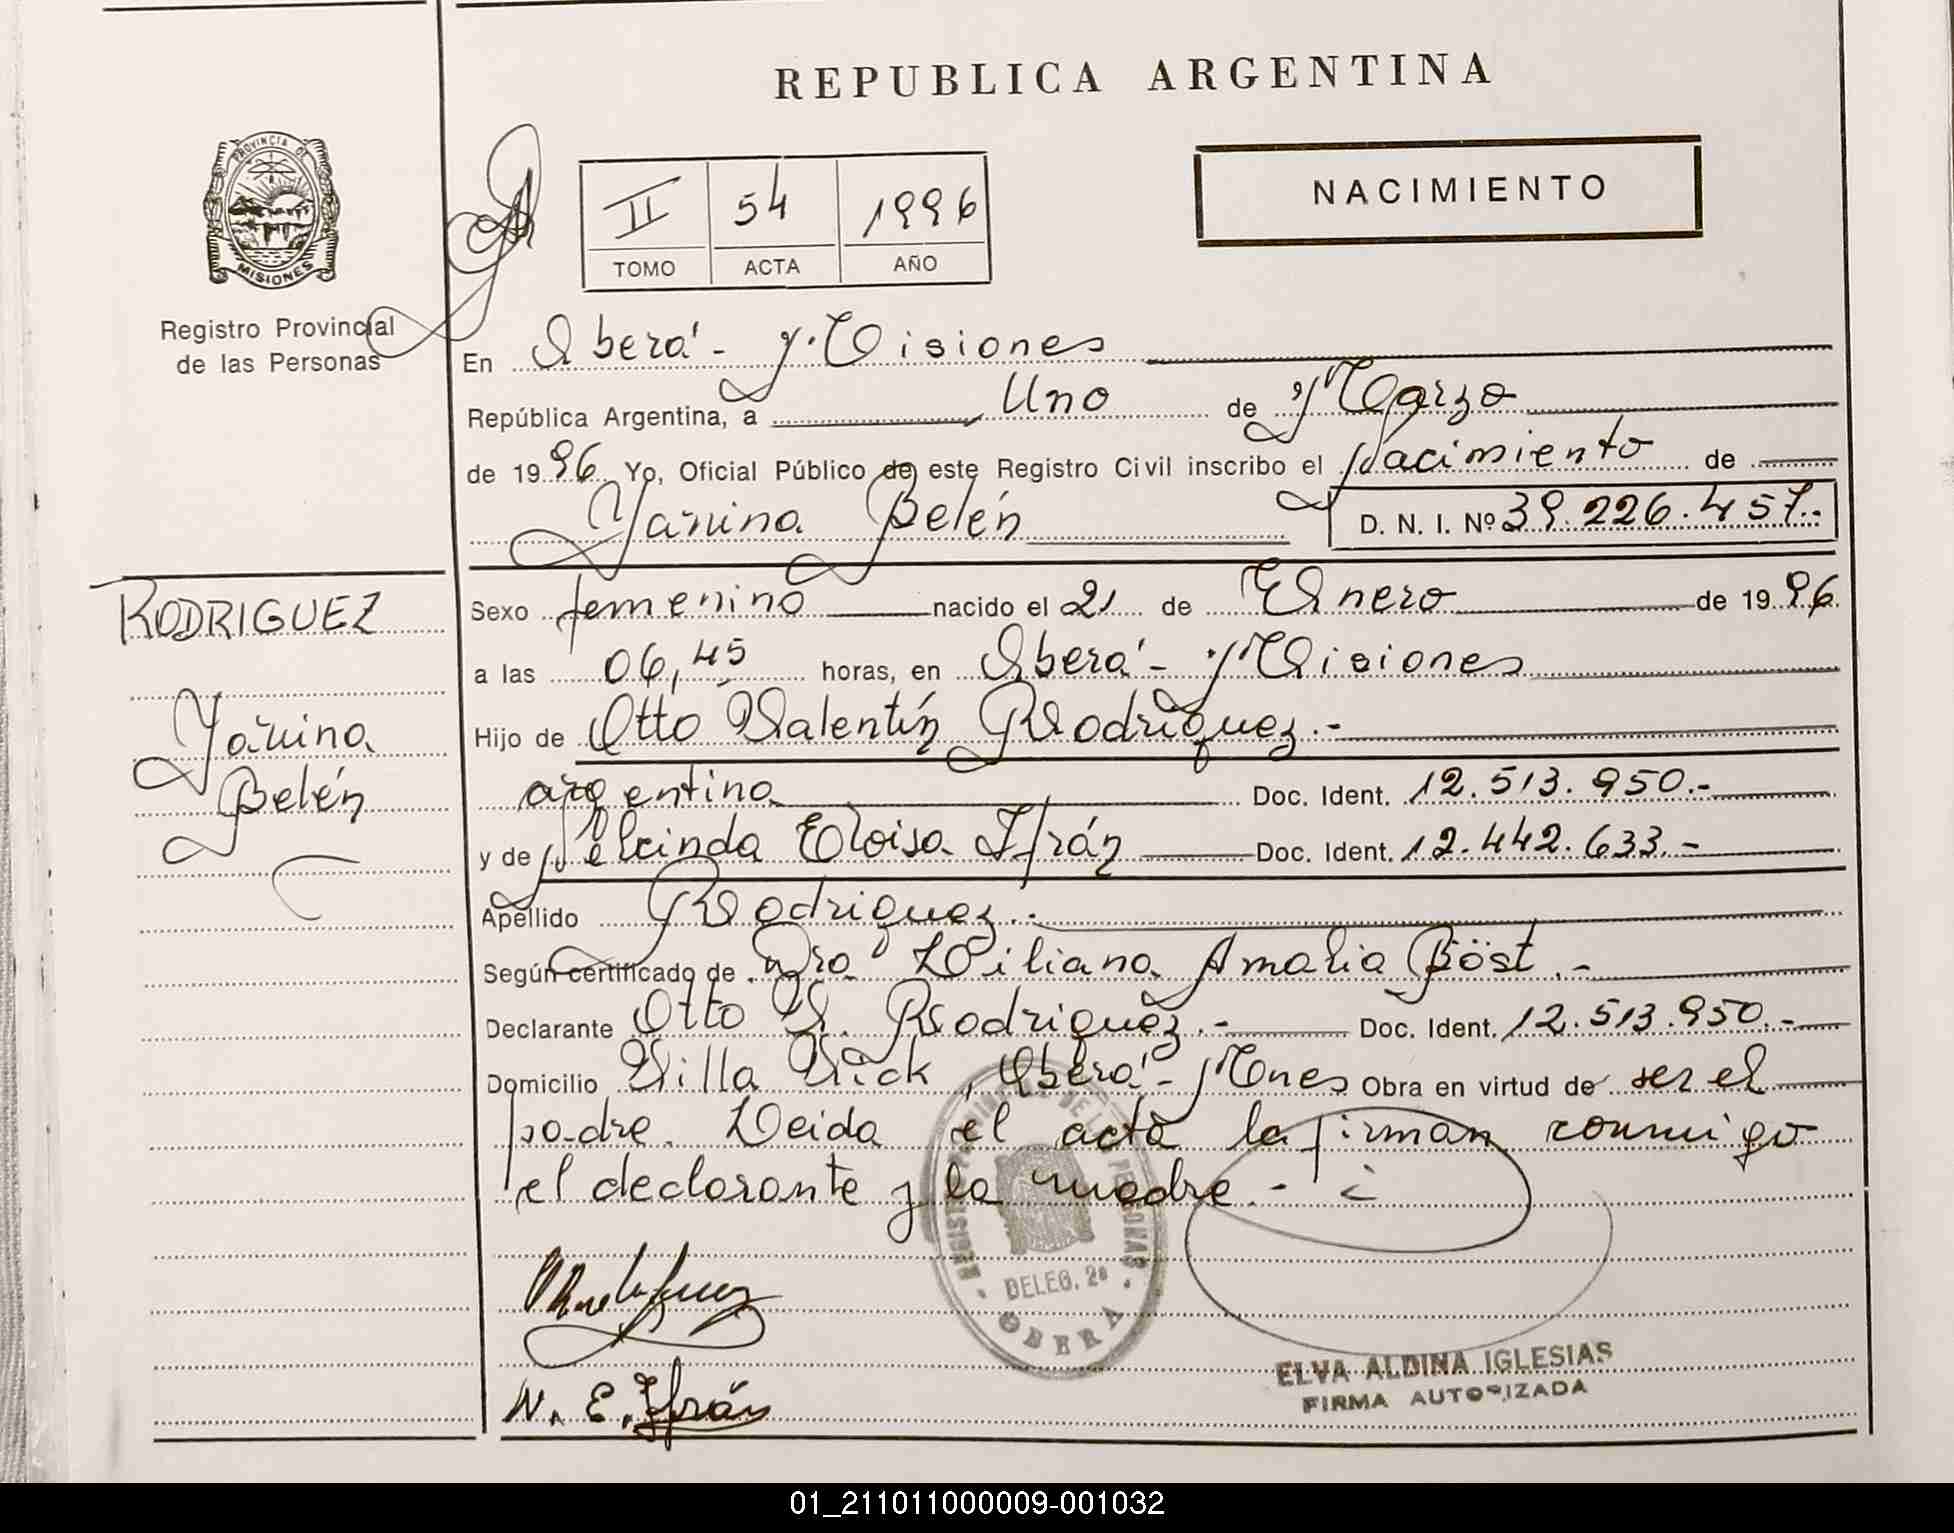 REPUBLICA ARGENTINA
NACIMIENTO
II 54 1996
TOMO ACTA AÑO
PROVINCIA DE
MISIONES
Registro Provincial
de las Personas
En Oberá - Misiones
República Argentina, a Uno de Marzo
de 19 96 Yo, Oficial Público de este Registro Civil inscribo el Nacimiento de
Yanina Belén D. N. I. Nº 39.226.457.-
RODRIGUEZ
Yanina
Belén
Sexo femenino nacido el 21 de Enero de 19 96
a las 06,45 horas, en Oberá - Misiones
Hijo de Otto Valentín Rodriguez.-
argentina Doc. Ident. 12.513.950.-
y de Nelcinda Eloisa Ifrán Doc. Ident. 12.442.633.-
Apellido Rodriguez.-
Según certificado de Dra Liliana Amalia Böst.-
Declarante Otto V. Rodriguez.- Doc. Ident. 12.513.950.-
Domicilio Villa Vick, Oberá - Mnes Obra en virtud de ser el
padre. Leida el acta la firman conmigo
el declarante y la madre.-
REGISTRO PROVINCIAL DE LAS PERSONAS
DELEG. 2ª
OBERA
N. E. Ifrán
ELVA ALDINA IGLESIAS
FIRMA AUTORIZADA
01_211011000009-001032